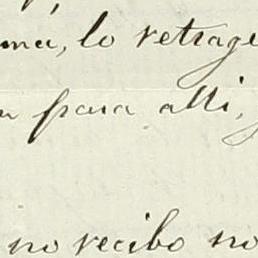 má, lo retrage
para alli,
no recibo no